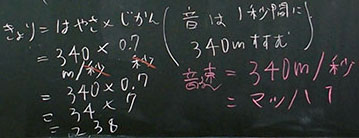 きょり=はやさ×じかん
=340×0.7
m/秒 秒
=340×0.7
=34×7
=238
(音は1秒間に
340mすすむ)
音速=340m/秒
=マッハ1